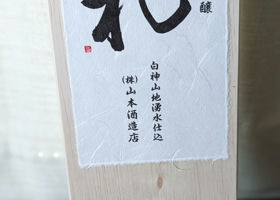 醸
白神山地湧水仕込
(株)山本酒造店